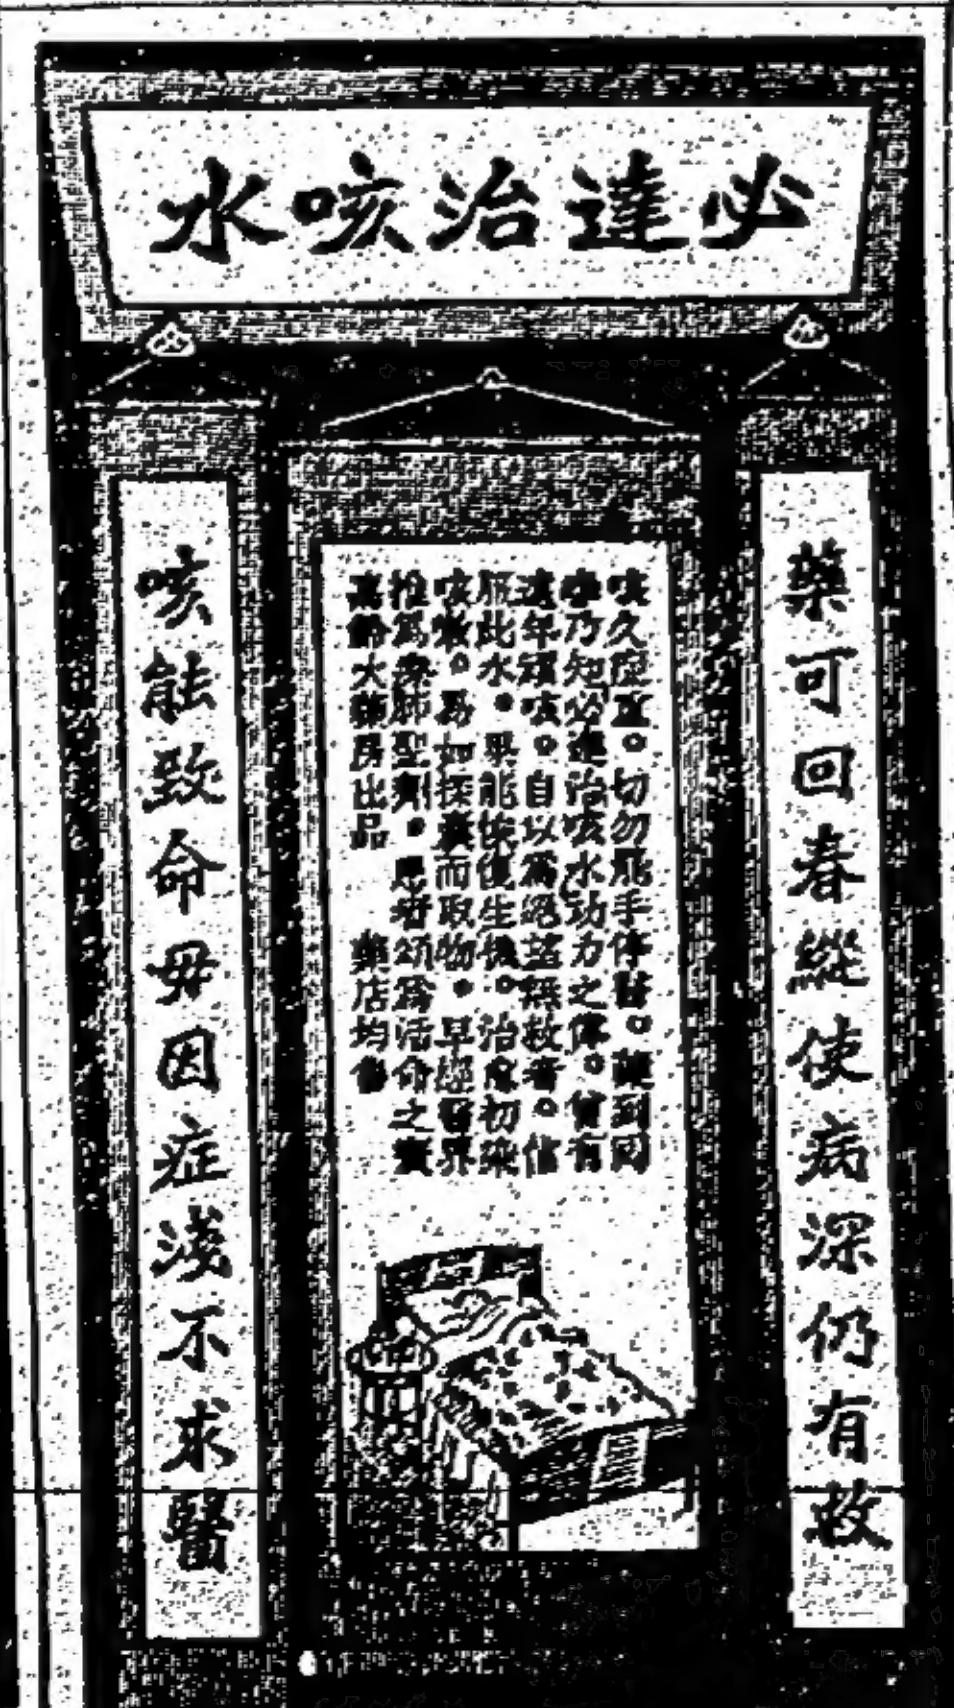 必達治咳水
藥可回春縱使病深仍有救
咳久症重。切勿脫手停醫。到
乃知必達治咳水功力之偉。曾有
年咳。自以為絕望無救者。
服此水。果能恢復生機。治療初染
咳。易如探囊而取物。早經醫界
推為聖劑。患者頌為活命之寶
大藥房出品 藥店均售
咳能致命毋因症淺不求醫